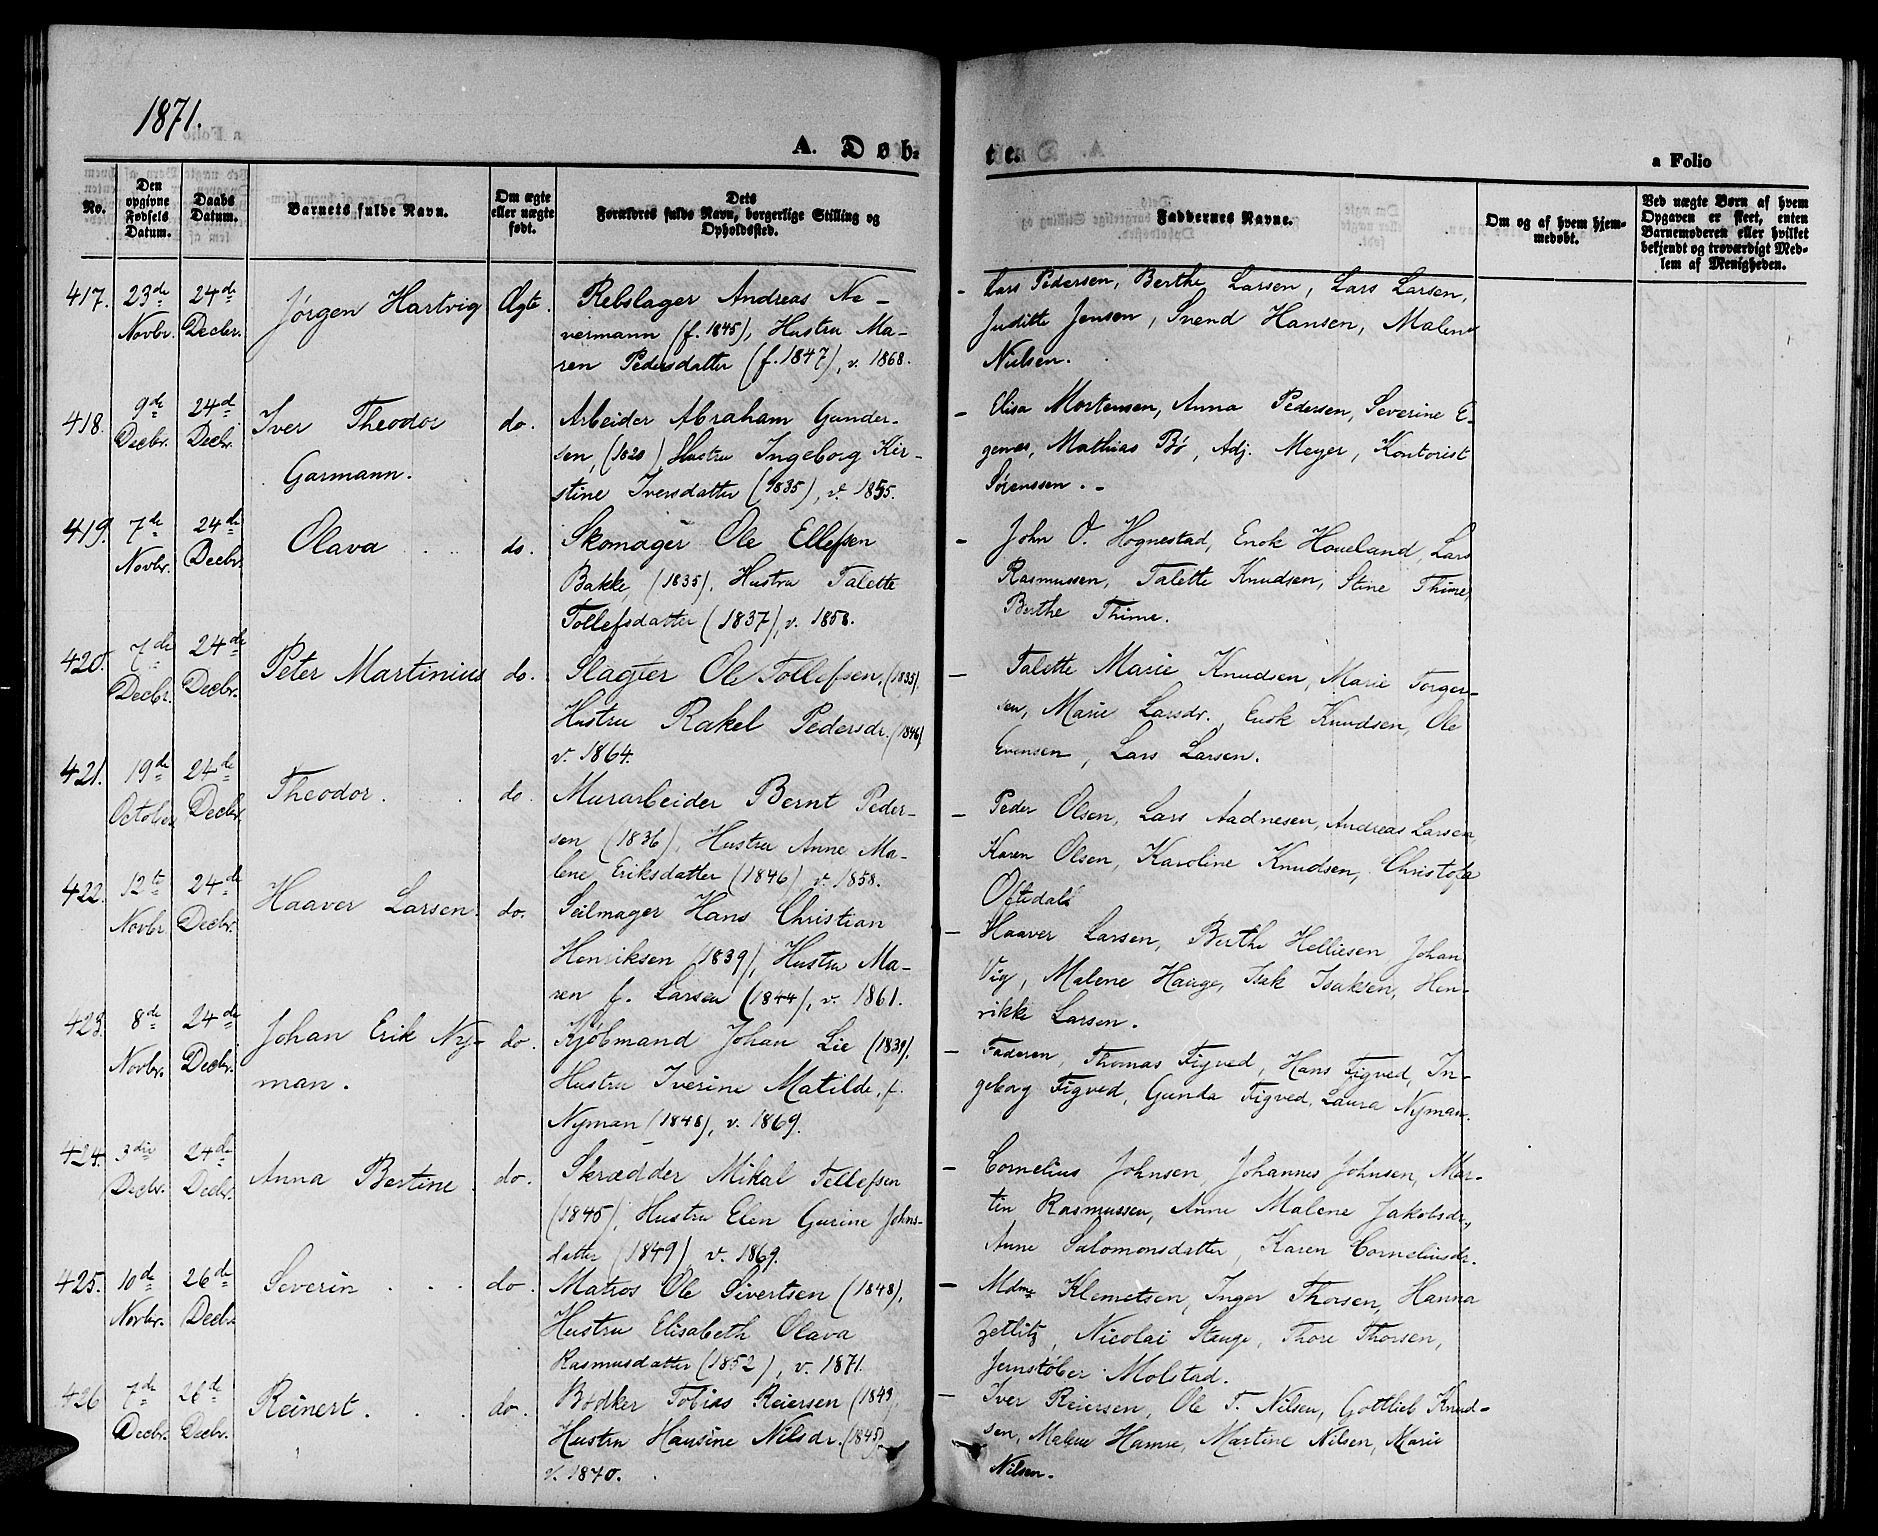 1871.
A. Døb-
te.
a Folio
No.
Den opgivne Fødsels Datum.
Daabs Datum.
Barnets fulde Navn.
Om ægte eller uægte født.
Dets Forældres fulde Navn, borgerlige Stilling og Opholdssted.
Faddernes Navne.
Om og af hvem hjemmedøbt.
Ved uægte Børn af hvem Opgaven er skeet, enten Barnemoderen eller hvilket bekjendt og troværdigt Medlem af Menigheden.
417. 23de Novbr. 24de Decbr. Jørgen Hartvig Ægte.
Rebslager Andreas Ne-
vermann (f. 1845), Hustru Ma-
ren Pedersdatter (f. 1847), v. 1868.
- Lars Pedersen, Berthe Larsen, Lars Larsen,
Juditte Jensen, Svend Hansen, Malene
Nielsen.
418. 9de Decbr. 24de Decbr. Iver Theodor
Garmann. do.
Arbeider Abraham Gunder-
sen, (1820) Hustru Ingeborg Kir-
stine Iversdatter (1835), v. 1855.
- Elisa Mortensen, Anna Pedersen, Severine E-
genes, Mathias Bø, Adj. Meyer, Kontorist
Sørenssen. -
419. 7de Novbr. 24de Decbr. Olava do.
Skomager Ole Ellefsen
Bakke, (1835). Hustru Talette
Tollefsdatter (1837), v. 1858.
- John O. Hognestad, Enok Houeland, Lars
Rasmussen, Talette Knudsen, Stine Thime,
Berthe Thime.
420. 7de Decbr. 24de Decbr. Peter Martinius do.
Slagter Ole Tollefsen, (1835),
Hustru Rakel Pedersdr. (1846)
v. 1864.
- Talette Marie Knudsen, Marie Torger-
sen, Marie Larsdr., Enok Knudsen, Ole
Evensen, Lars Larsen.
421. 19de October 24de Decbr. Theodor. do.
Murarbeider Bernt Peder-
sen (1836), Hustru Anne Ma-
lene Eriksdatter (1846) v. 1858.
- Peder Olsen, Lars Aadnesen, Andreas Larsen,
Karen Olsen, Karoline Knudsen, Christofer
Oftedal.
422. 12te Novbr. 24de Decbr. Haaver Larsen. do.
Seilmager Hans Christian
Henriksen (1839), Hustru Ma-
ren f. Larsen (1844), v. 1861.
- Haaver Larsen, Berthe Helliesen, Johan
Vig, Malene Hauge, Isak Isaksen, Hen-
rikke Larsen.
423. 8de Novbr. 24de Decbr. Johan Erik Ny-
man. do.
Kjøbmand Johan Lie (1839),
Hustru Iverine Matilde, f.
Nyman (1848), v. 1869.
- Faderen, Thomas Figved, Hans Figved, In-
geborg Figved, Gunda Figved, Laura Nyman.
424. 3die Decbr. 24de Decbr. Anna Bertine. do.
Skrædder Mikal Tellefsen
(1845), Hustru Elen Gurine Johns-
datter (1849), v. 1869.
- Cornelius Johnsen, Johannes Johnsen, Mar-
tin Rasmussen, Anne Malene Jakobsdr.,
Anne Salomonsdatter, Karen Corneliusdr.
425. 10de Novbr. 26de Decbr. Severin do.
Matros Ole Sivertsen (1848),
Hustru Elisabeth Olava
Rasmusdatter (1852), v. 1871.
- Mdme Klemetsen, Inger Thorsen, Hanna
Zetlitz, Nicolai Stange, Thore Thorsen,
Jernstøber Molstad.
426 7de Decbr. 26de Decbr. Reinert. do.
Bødker Tobias Reiersen (1849,
Hustru Hansine Nilsdr. (1845)
v. 1870.
- Iver Reiersen, Ole T. Nilsen, Gottlieb Knud-
sen, Malene Hamre, Martine Nilsen, Marie
Nilsen.